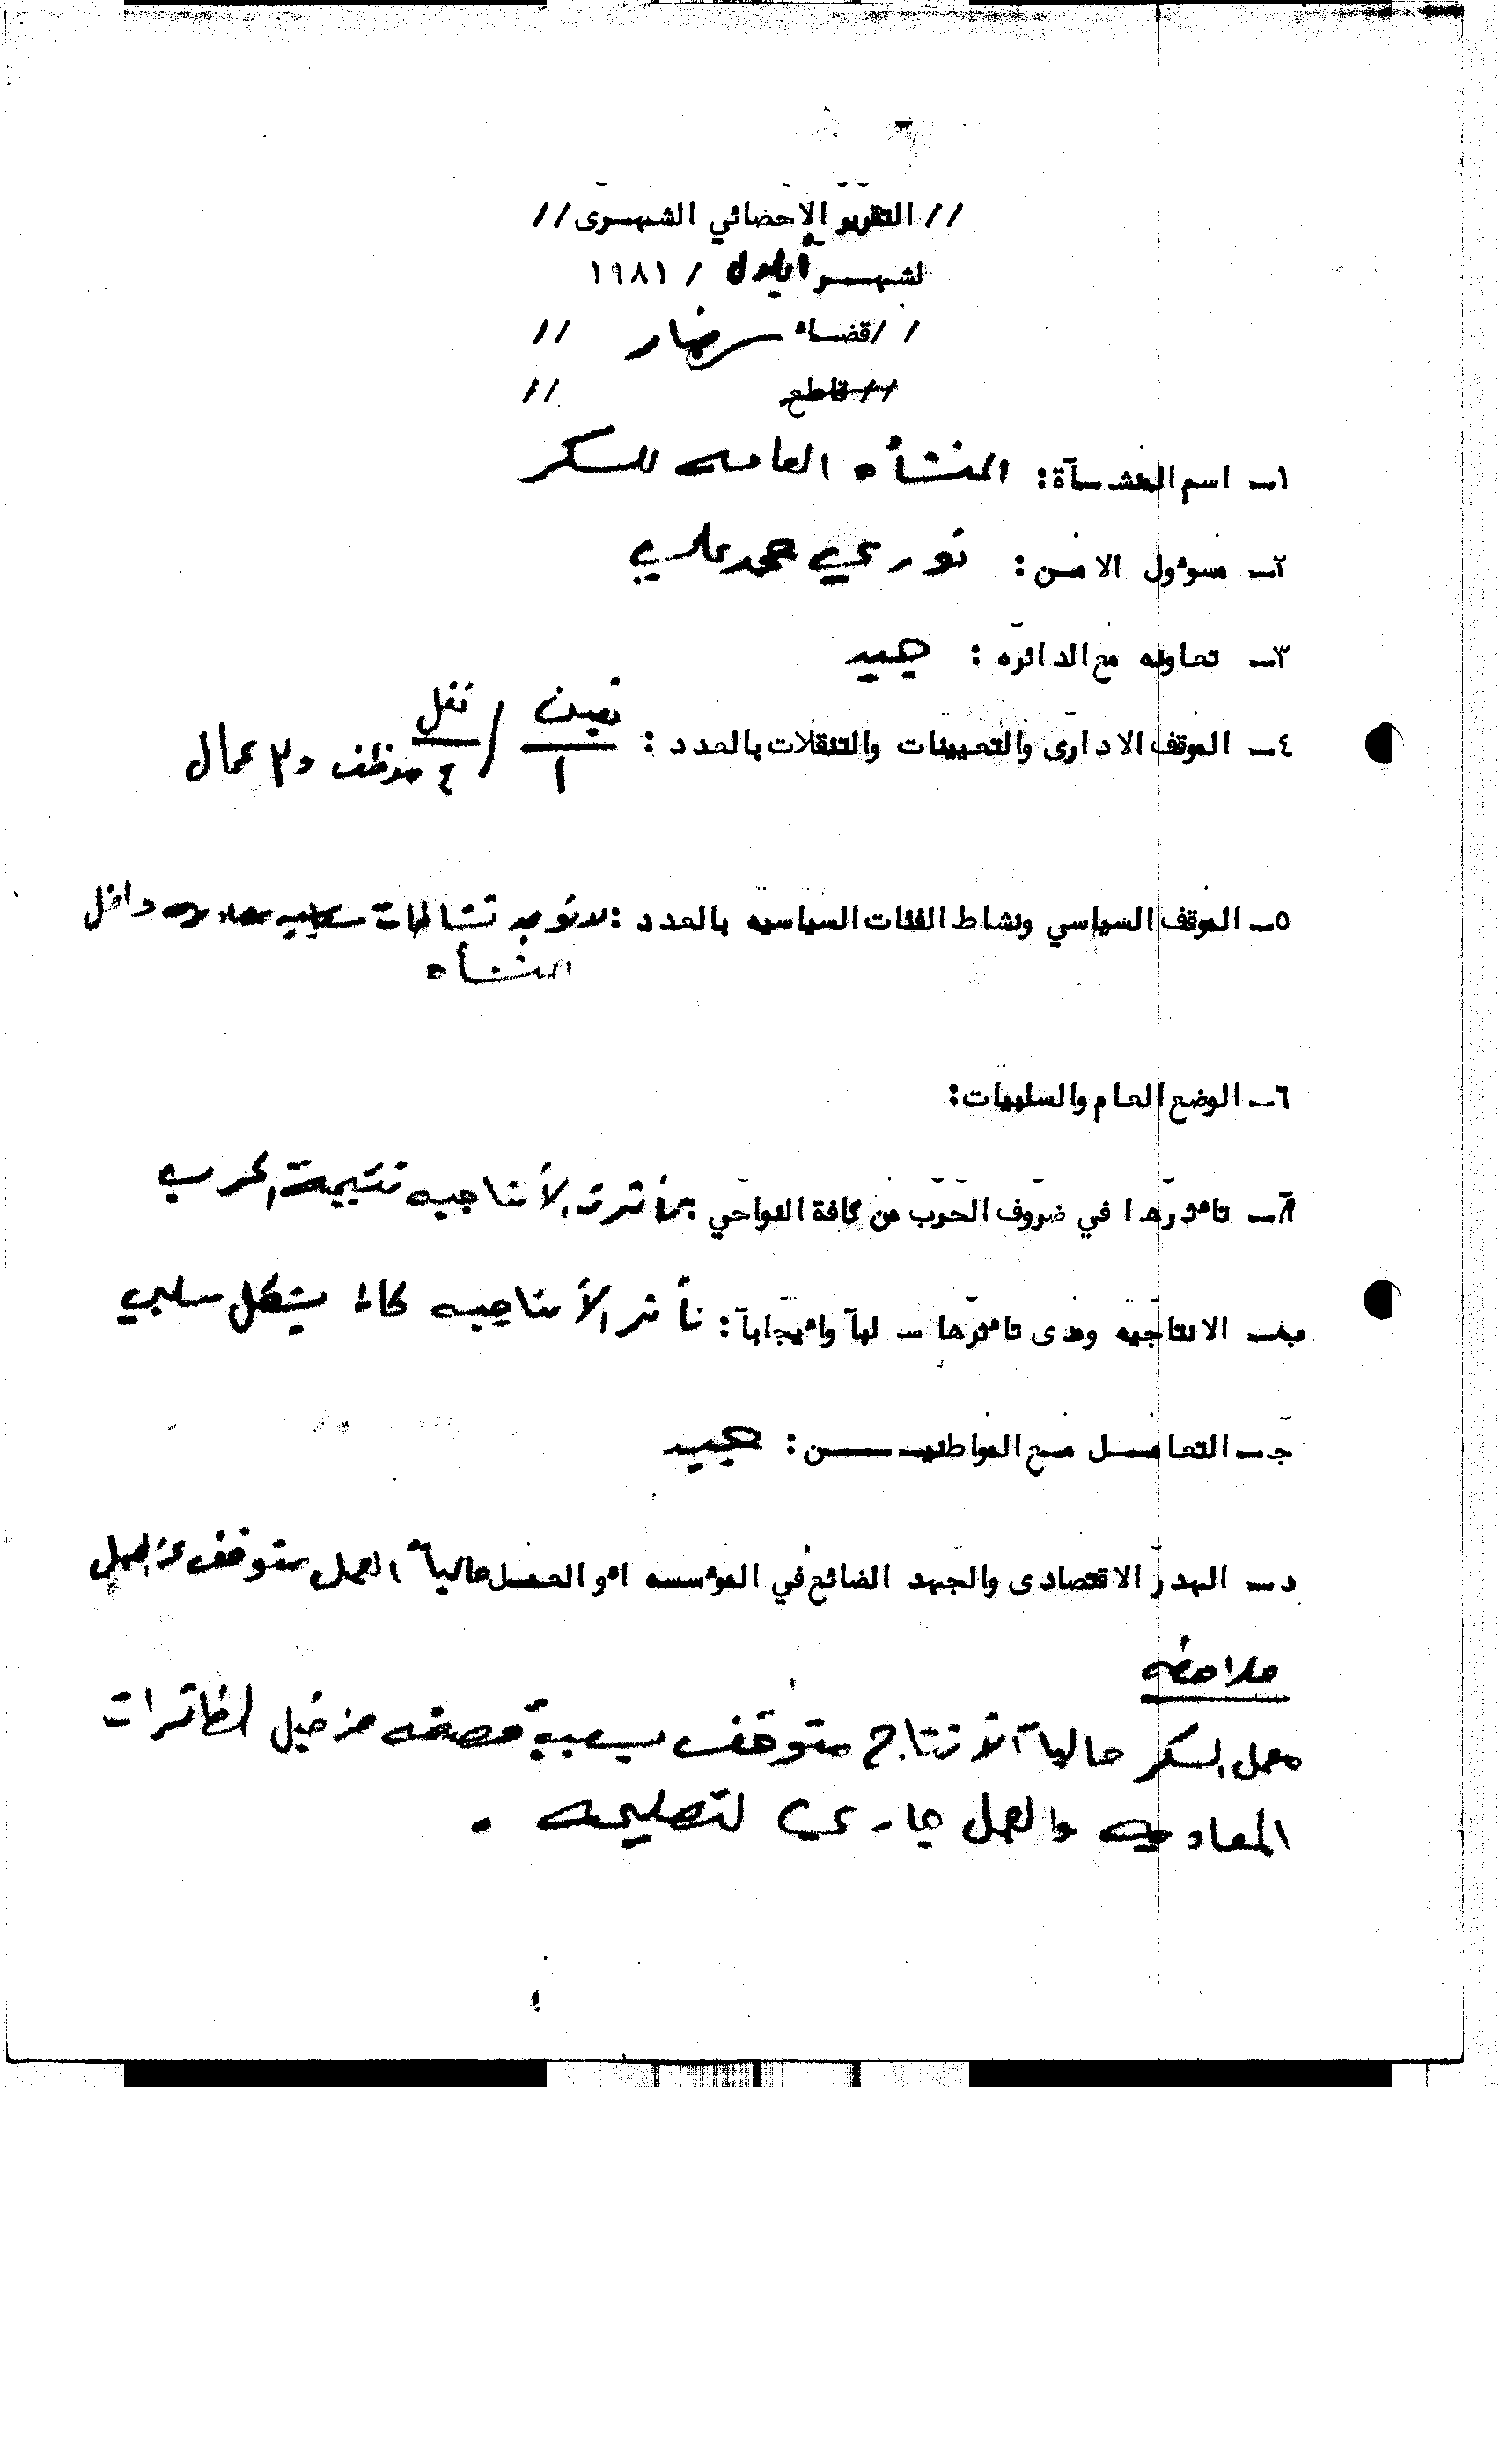 // التقرير الاحصائي الشهـــرى //
لشهــــر أيلول / ١٩٨١
// قضــاء //
// قاطع //
١ــ اسم المنشــأة : المنشأه العامه للسكر
٢ــ مسوءول الامــن : نوري محمد علي
٣ــ تعاونه مع الدائره : جيد
٤ــ الموقف الادارى والتعيينات والتنقلات بالعدد : تعين / نقل
١ ٤ موظف و ٣ عمال
٥ــ الموقف السياسي ونشاط الفئات السياسيه بالعدد : لا توجد نشاطات سياسيه معاديه داخل
المنشأه
٦ــ الوضع العام والسلبيات :
أــ تاءثرها في ضروف الحرب من كافة النواحي : تأثرت الأنتاجيه نتيجة الحرب
بـــ الانتاجيه ومدى تاءثرها ســلباً واءيجاباً : تأثر الأنتاجيه كان بشكل سلبي
جــ التعامـــل مــع المواطنيــــــن : جيد
دــ الهدر الاقتصادى والجهد الضائع في الموءسسه اءو العمــل حالياً العمل متوقف عن العمل
ملاحظه
معمل السكر حالياً الأنتاج متوقف بسبب قصفه من قبل الطائرات
المعاديه والعمل جاري لتصليحه .